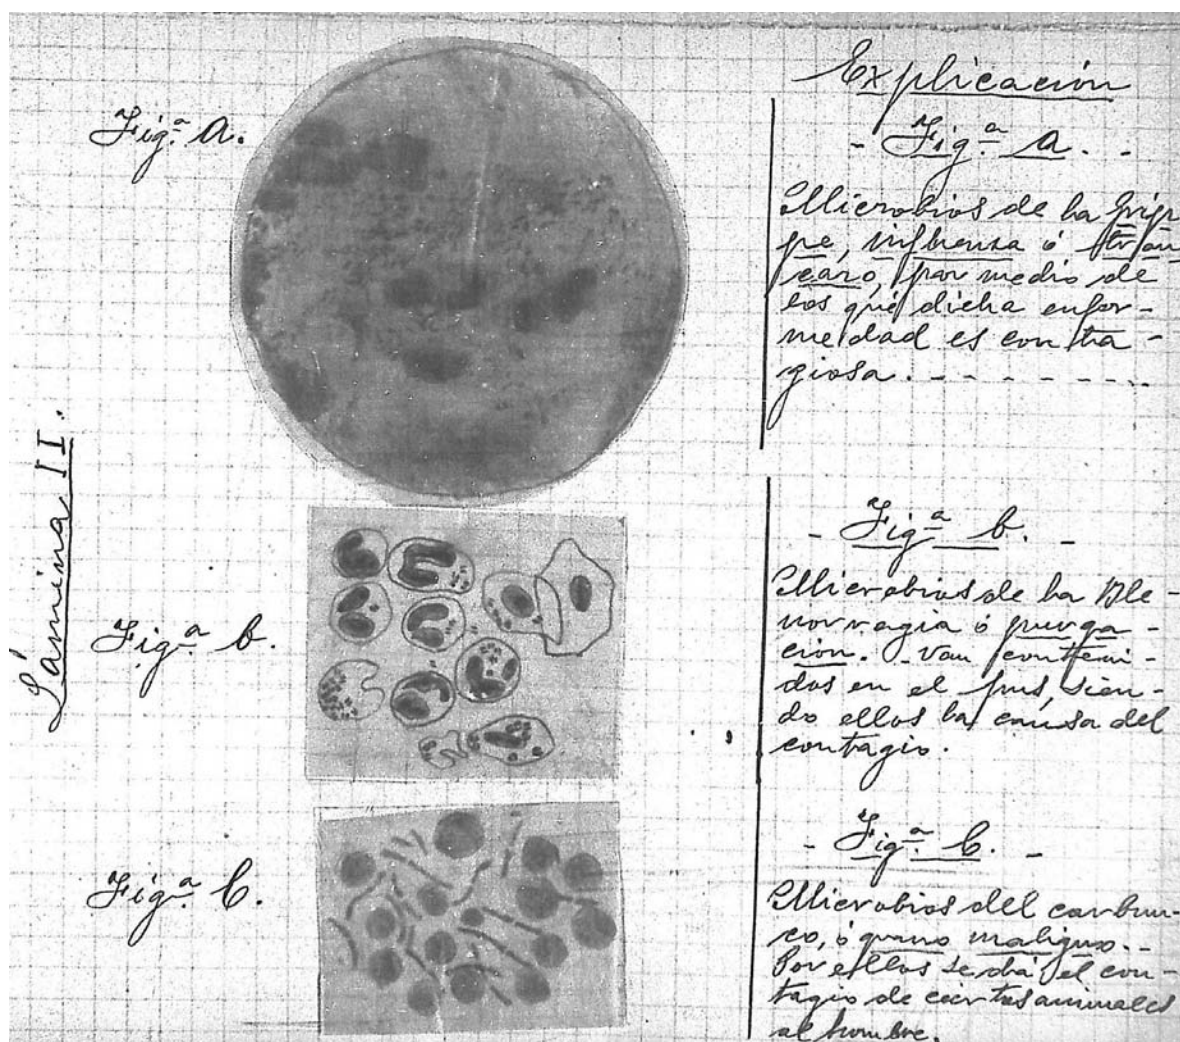 Lámina II.
Figª a.
Figª b.
Figª C.
Explicación
- Figª a. -
Microbios de la grip
pe, influenza ó tran
cazo, por medio de
los que dicha enfer-
medad es conta-
giosa. - - - - - - -
- Figª b. -
Microbios de la Ble-
norragia ó purga-
ción. - Van conteni-
dos en el pus, sien-
do ellos la causa del
contagio.
- Figª C. -
Microbios del carbun-
co, ó grano maligno. -
Por ellos se dá el con-
tagio de ciertos animales
al hombre.